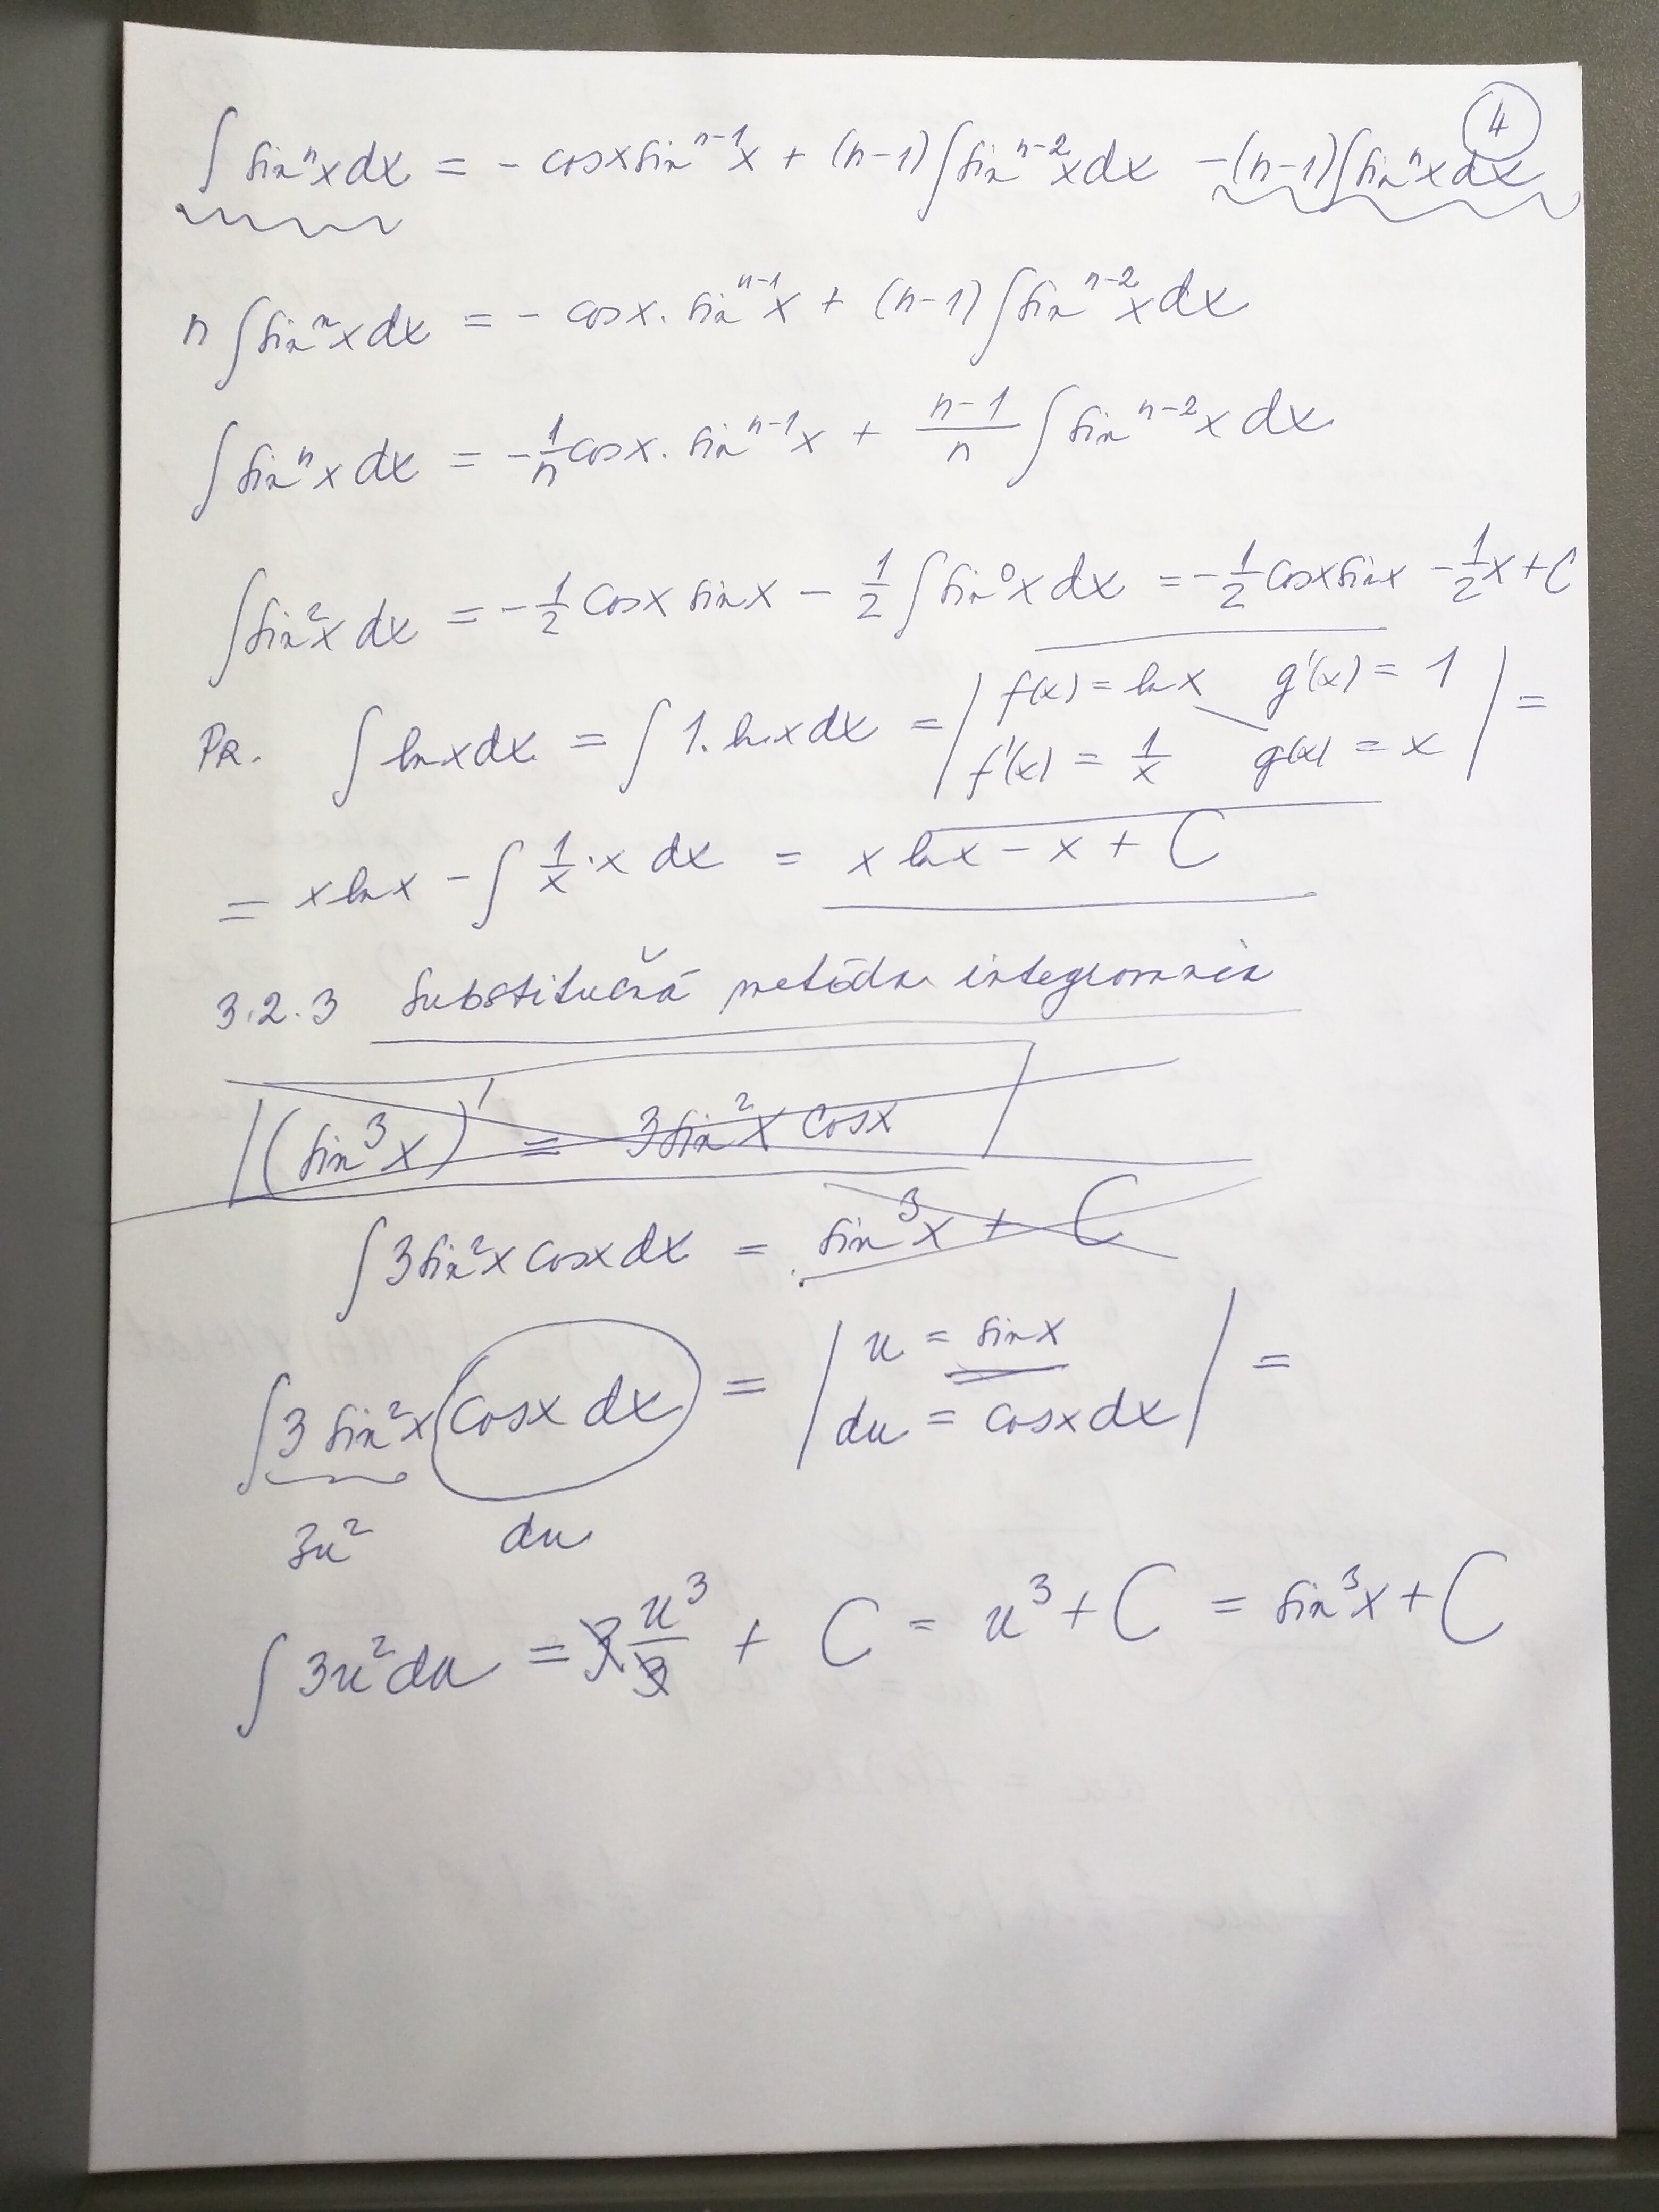 4
∫ sinⁿx dx = - cosx sinⁿ⁻¹x + (n-1) ∫ sinⁿ⁻²x dx - (n-1) ∫ sinⁿx dx
n ∫ sinⁿx dx = - cosx . sinⁿ⁻¹x + (n-1) ∫ sinⁿ⁻²x dx
∫ sinⁿx dx = - 1/n cosx . sinⁿ⁻¹x + (n-1)/n ∫ sinⁿ⁻²x dx
∫ sin²x dx = - 1/2 cosx sinx - 1/2 ∫ sin⁰x dx = - 1/2 cosx sinx - 1/2 x + C
PR. ∫ lnx dx = ∫ 1. lnx dx = | f(x) = lnx g'(x) = 1 | =
f'(x) = 1/x g(x) = x
= x lnx - ∫ 1/x . x dx = x lnx - x + C
3.2.3 Substitučná metóda integrovania
| (sin³x)' = 3 sin²x cosx |
∫ 3 sin²x cosx dx = sin³x + C
∫ 3 sin²x cosx dx = | u = sinx | =
du = cosx dx
3u² du
∫ 3u² du = 3 u³/3 + C = u³ + C = sin³x + C